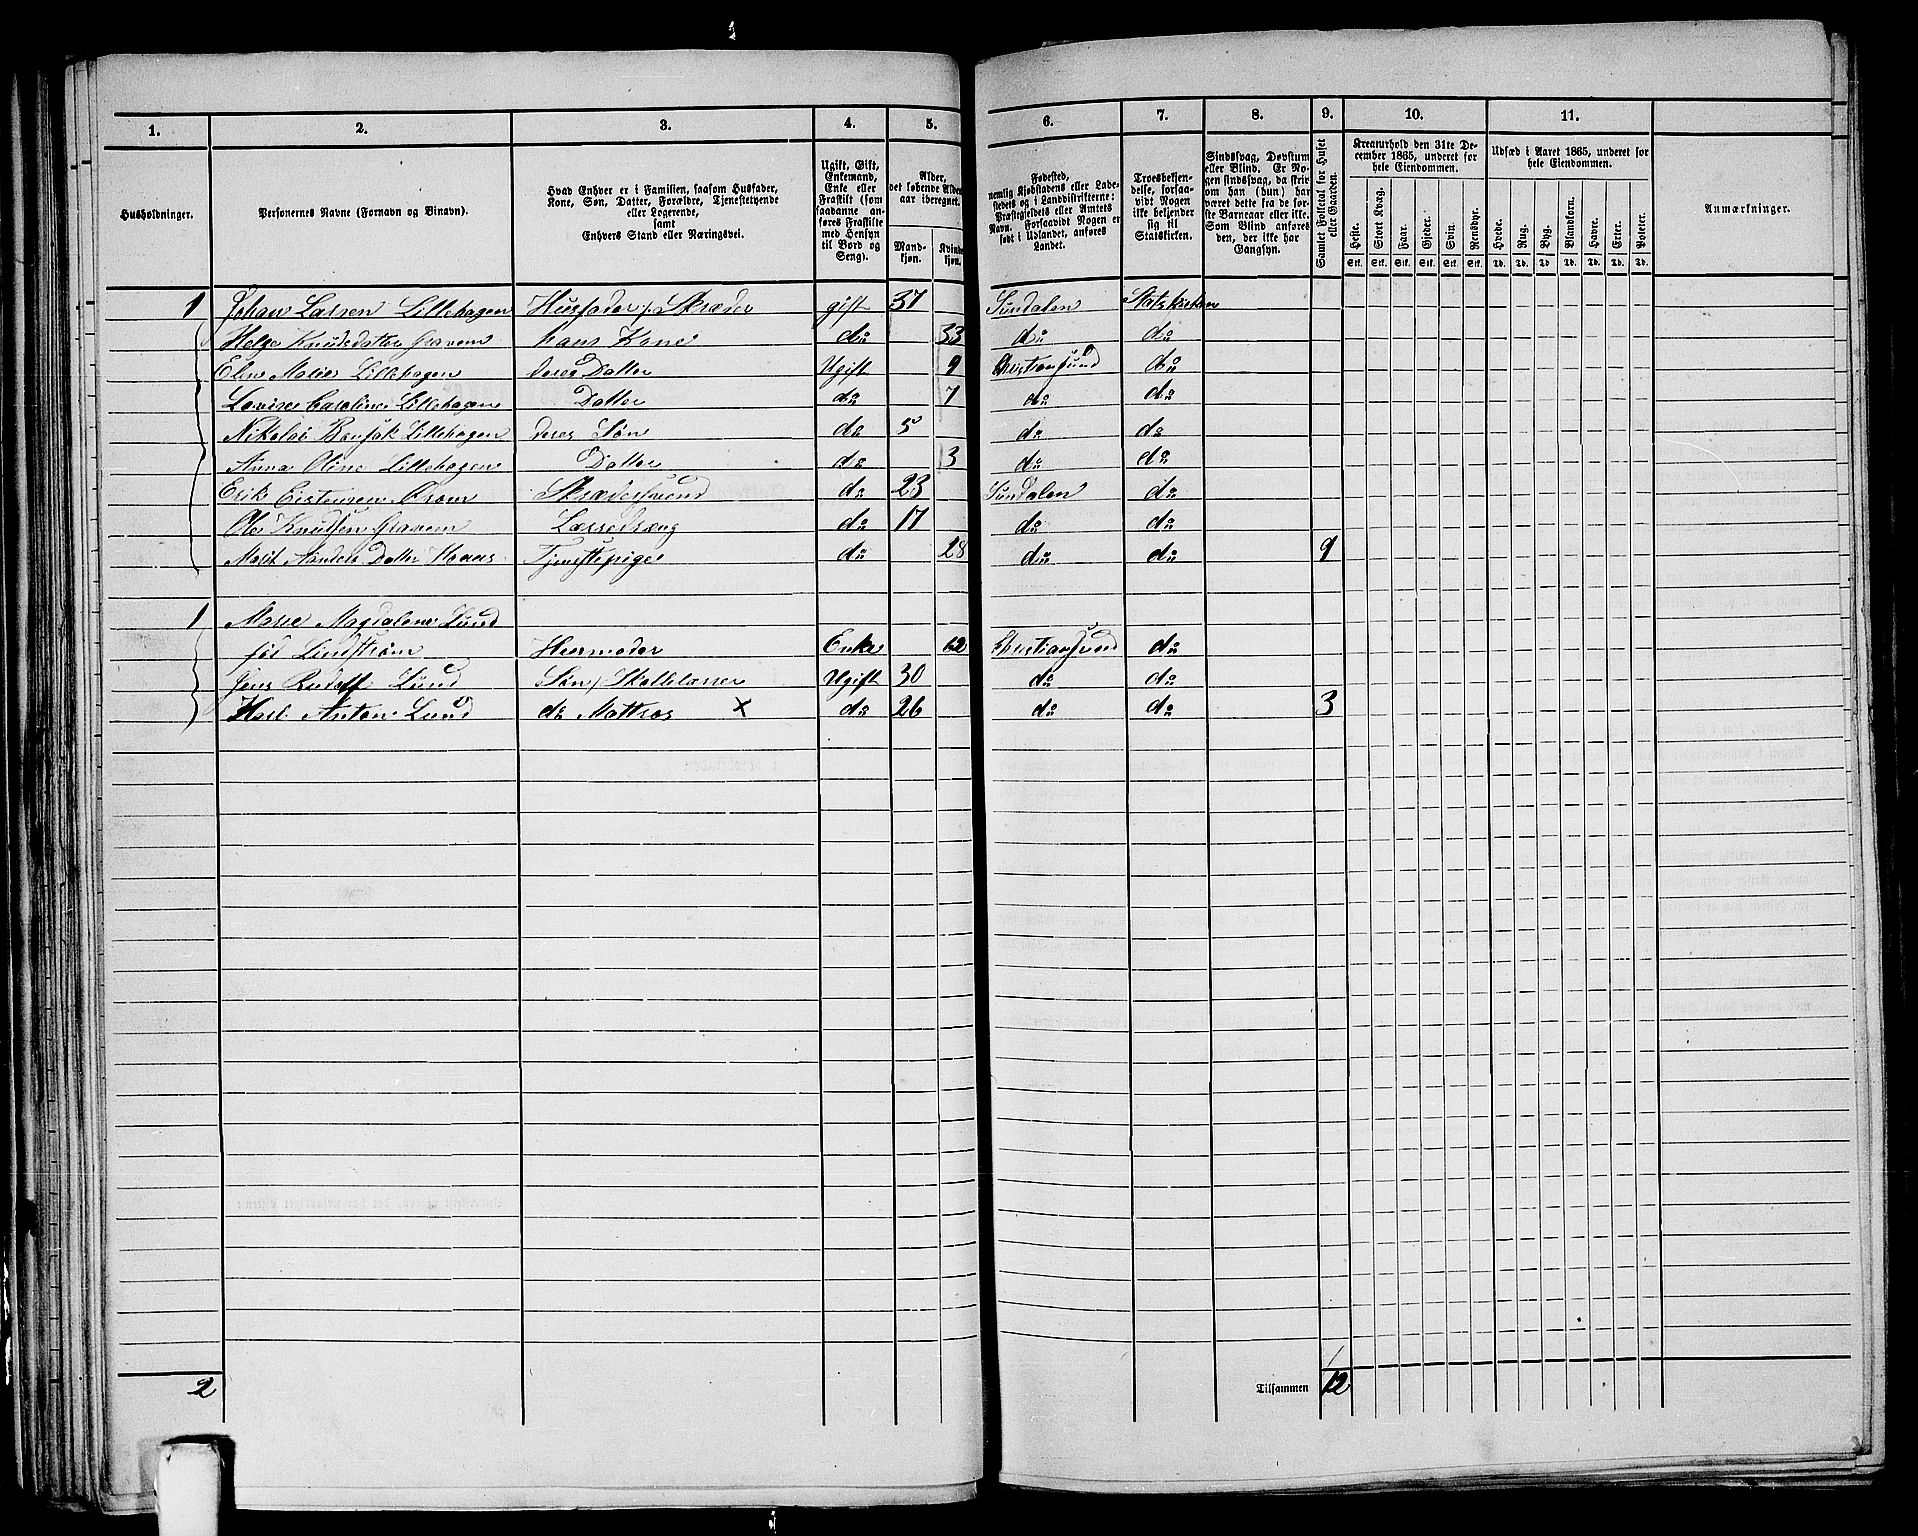 1. 2. 3. 4. 5. 6. 7. 8. 9. 10. 11.
Husholdninger.
Personernes Navne (Fornavn og Binavn).
Hvad Enhver er i Familien, saasom Husfader,
Kone, Søn, Datter, Forældre, Tjenestetyende
eller Logerende,
samt
Enhvers Stand eller Næringsvei.
Ugift, Gift,
Enkemand,
Enke eller
Fraskilt (som
saadanne an-
føres Fraskilte
med Hensyn
til Bord og
Seng).
Alder,
det løbende Alders-
aar iberegnet.
Mand-
kjøn.
Kvinde-
kjøn.
Fødested,
nemlig Kjøbstadens eller Lade-
stedets og i Landdistrikterne:
Præstegjeldets eller Amtets
Navn. Forsaavidt Nogen er
født i Udlandet, anføres
Landet.
Troesbekjen-
delse, forsaa-
vidt Nogen
ikke bekjender
sig til
Statskirken.
Sindssvag, Døvstum
eller Blind. Er No-
gen sindssvag, da skriv
om han (hun) har
været dette fra de før-
ste Barneaar eller ikke.
Som Blind anføres
den, der ikke har
Gangsyn.
Samlet Folketal for Huset
eller Gaarden.
Kreaturhold den 31te De-
cember 1865, underet for
hele Eiendommen.
Heste. Stort Kvæg. Faar. Gjeder. Svin. Rensdyr.
Stk. Stk. Stk. Stk. Stk. Stk.
Udsæd i Aaret 1865, underet for
hele Eiendommen.
Hvede. Rug. Byg. Blandkorn. Havre. Erter. Poteter.
Td. Td. Td. Td. Td. Td. Td.
Anmærkninger.
1 Johan Larsen Lillehagen Husfader / Skræder gift 37 Sundalen Statskirken
Helge Knudsdatter Gravem hans Kone do 33 do do
Eline Marie Lillehagen deres Datter Ugift 9 Christiansund do
Lovise Caroline Lillehagen Datter do 7 do do
Nikolai Lillehagen deres Søn do 5 do do
Anna Oline Lillehagen Datter do 3 do do
Erik Eistensen Skrædersvend do 23 Sundalen do
Ole Knudsen Gravem Læredreng do 17 do do
Marit Anders Datter Tjenestepige do 28 do do 9
1 Marie Magdalene Lund
fød Lindstrøm Huusmoder Enke 62 Christiansund do
Jens Rudolf Lund Søn / Ugift 30 do do
Karl Anton Lund do Matros X do 26 do do 3
2 Tilsammen 12